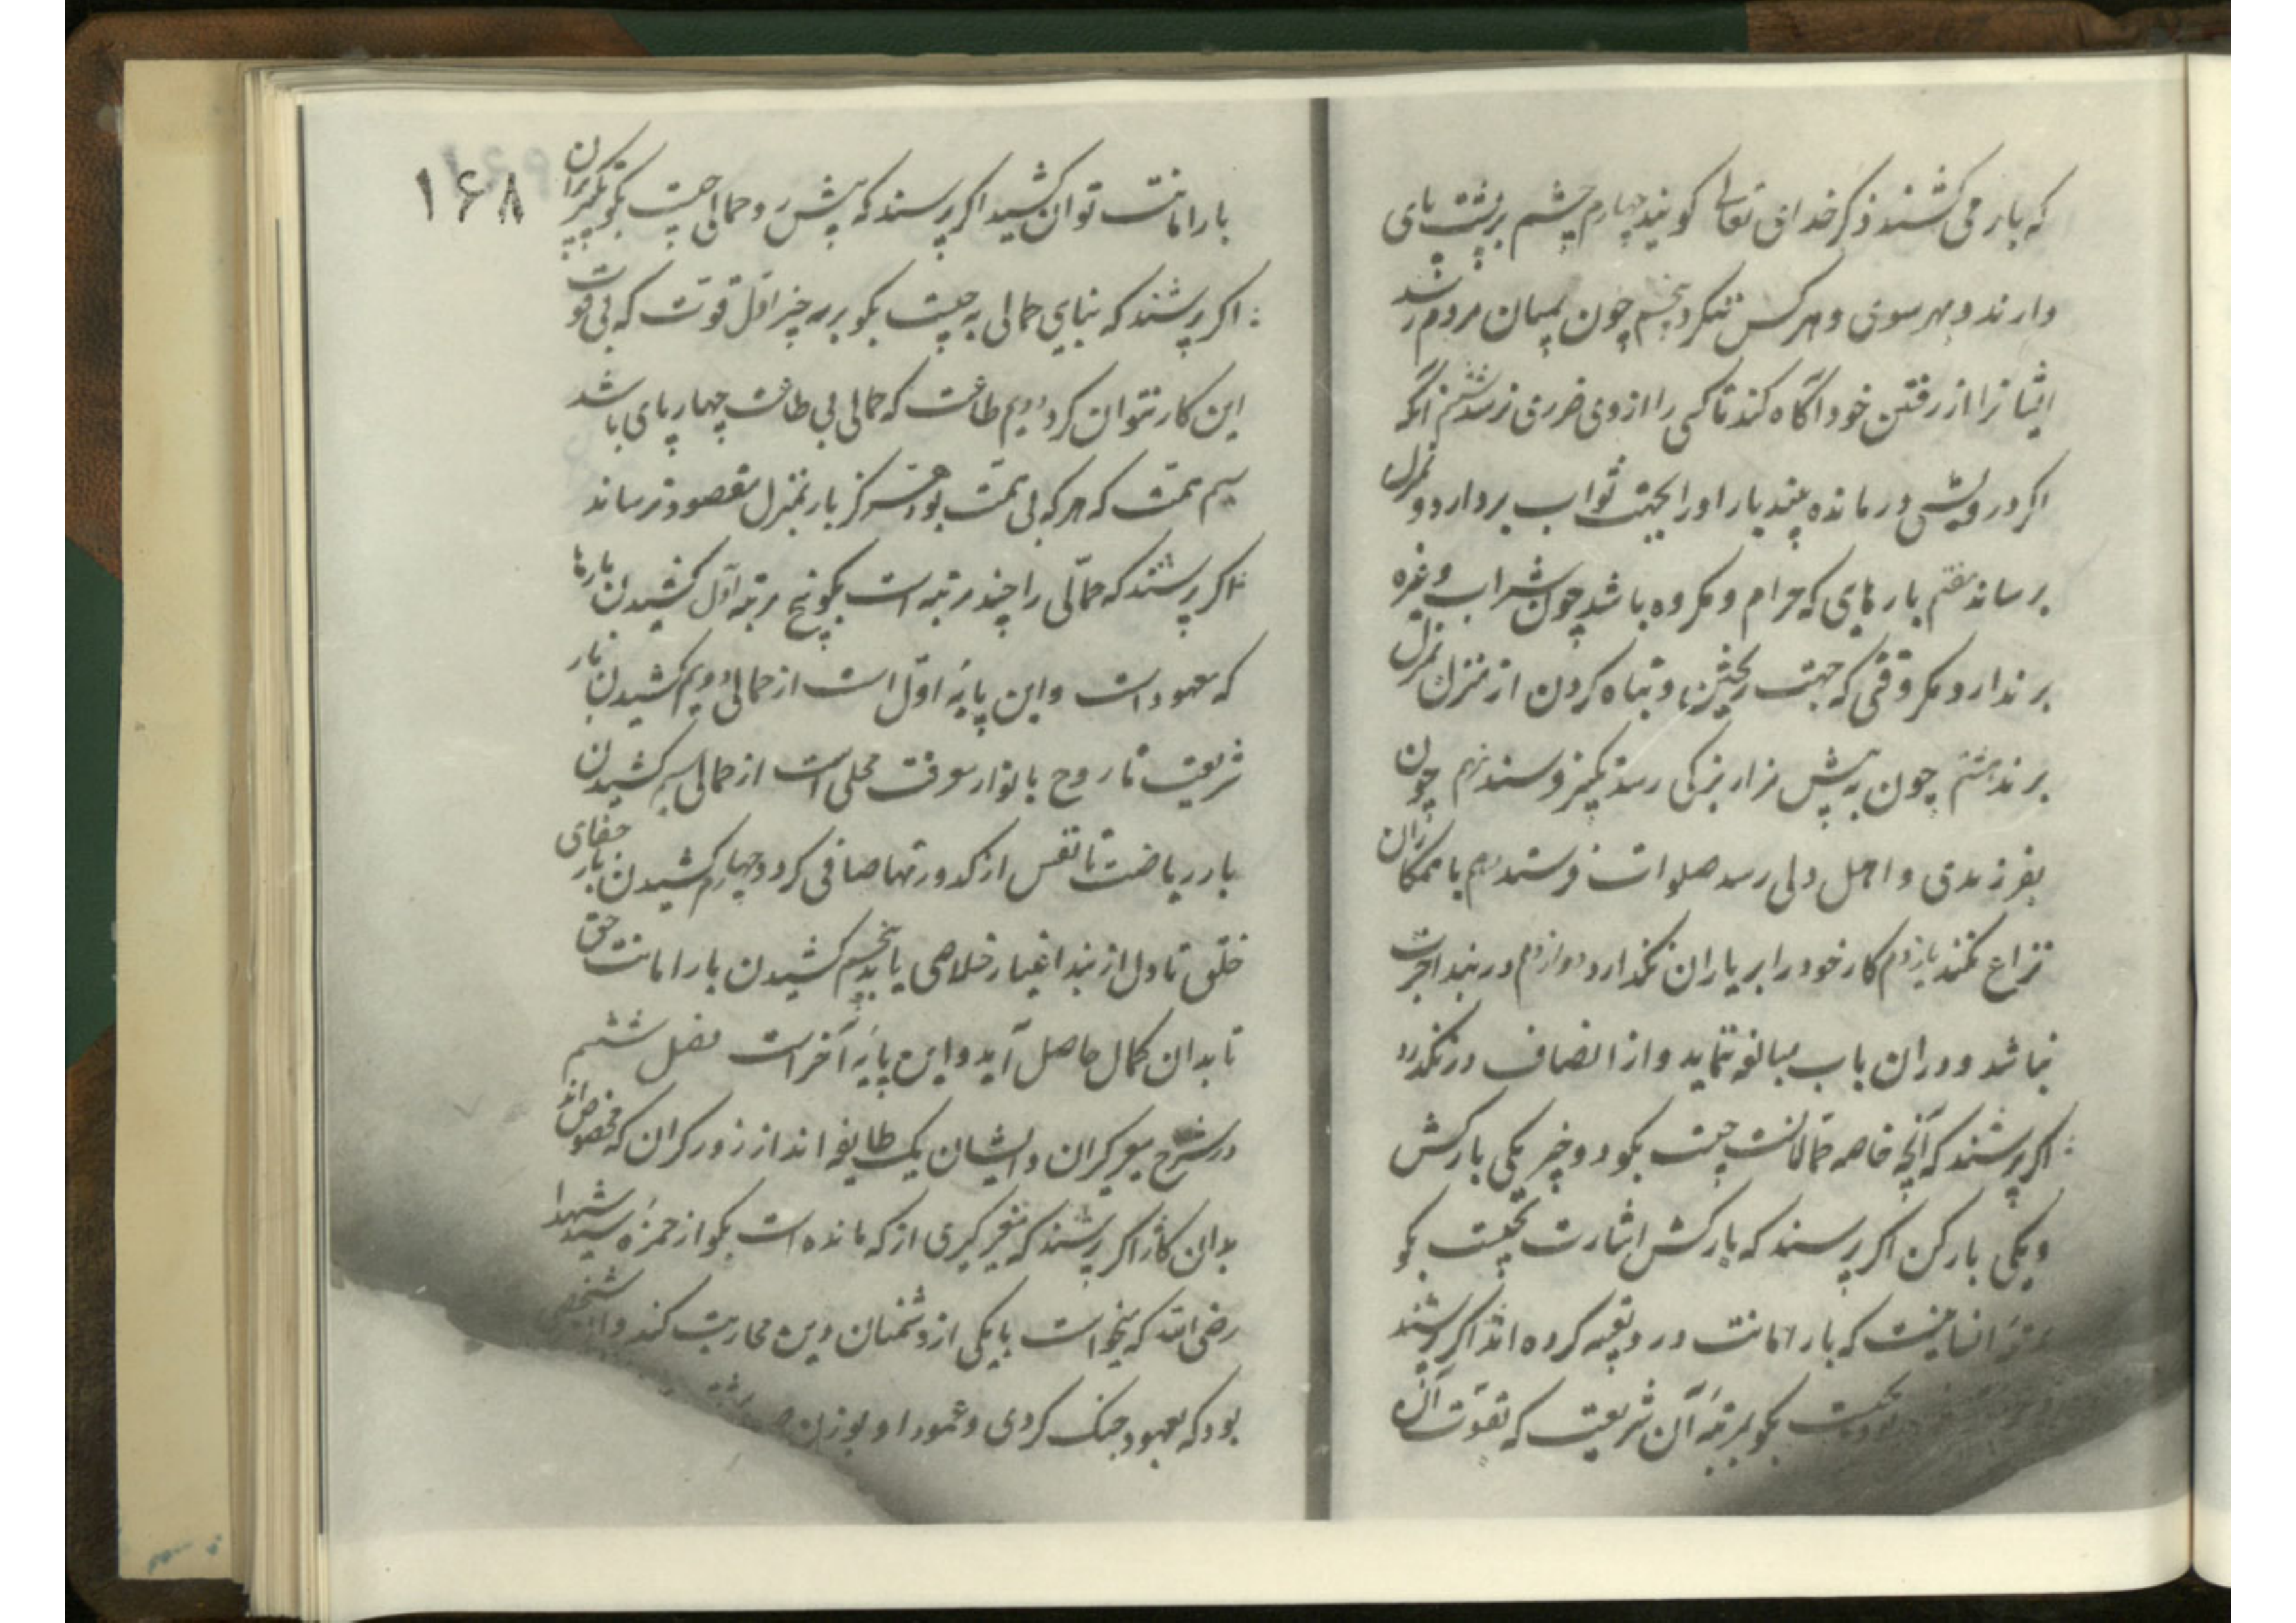 که بار می کشند ذکر خدای تعالی کویند چهارم چشم بر پشت پای
دارند و بهر سوی و هر کس ننکرد پنجم چون بمیان مردم رسد
ایشانرا از رفتن خود آگاه کند تا کسی را از وی ضرری نرسد ششم آنکه
اکر درویشی درمانده بیند بار او را بجهت ثواب بردارد و بمنزل
برساند هفتم بارهای که حرام و مکروه باشد چون شراب و غیره
برندارد مکر وقتی که جهت ریختن و تباه کردن از منزل بمنزل
برند هشتم چون به پیش مزار بزرکی رسد تکبیر فرستد نهم چون
بفرزندی و اهل دلی رسد صلوات فرستد دهم با همکاران
نزاع نکند یازدهم کار خود را بر یاران نگذارد دوازدهم در بند اجرت
نباشد و در آن باب مبالغه ننماید و از انصاف درنکذرد
اکر پرسند که آنچه خاصه حمالانست چیست بکو دو چیز یکی بارکش
و یکی بارکن اکر پرسند که بارکش اشارت بچیست بکو
انسانیت که بار امانت در و تعبیه کرده اند اکر پرسند
بکو بمرتبه آن شریعت که بقوت آن
۱۶۸
بار امانت توان کشید اکر پرسند که پیش رو حمالی چیست بکو تکبیر پیران
اکر پرسند که بنای حمالی به چیست بکو بر سه چیز اول قوت که بی قوت
این کار نتوان کرد دویم طاقت که حمالی بی طاقت چهارپای باشد
سیم همت که هر که بی همت بود هرکز بار بمنزل مقصود نرساند
اکر پرسند که حمالی را چند مرتبه است بکو پنج مرتبه اول کشیدن بارها
که معهود است و این پایه اول است از حمالی دویم کشیدن بار
شریعت تا روح بانوار معرفت محلی است از حمالی سیم کشیدن
بار ریاضت تا نفس از کدورتها صافی کردد چهارم کشیدن بار جفای
خلق تا دل از بند اغیار خلاصی یابد پنجم کشیدن بار امانت حق
تا بدان کمال حاصل آید و این پایه آخر است فصل ششم
در شرح کیران و ایشان یک طایفه اند از زورکران که مخصوص اند
بدان کار اکر پرسند که کیری از که مانده است بکو از حمزه سید شهدا
رضی الله که میخواست با یکی از دشمنان دین محاربت کند و آن شخصی
بود که بعمود جنک کردی و عمود او بوزن